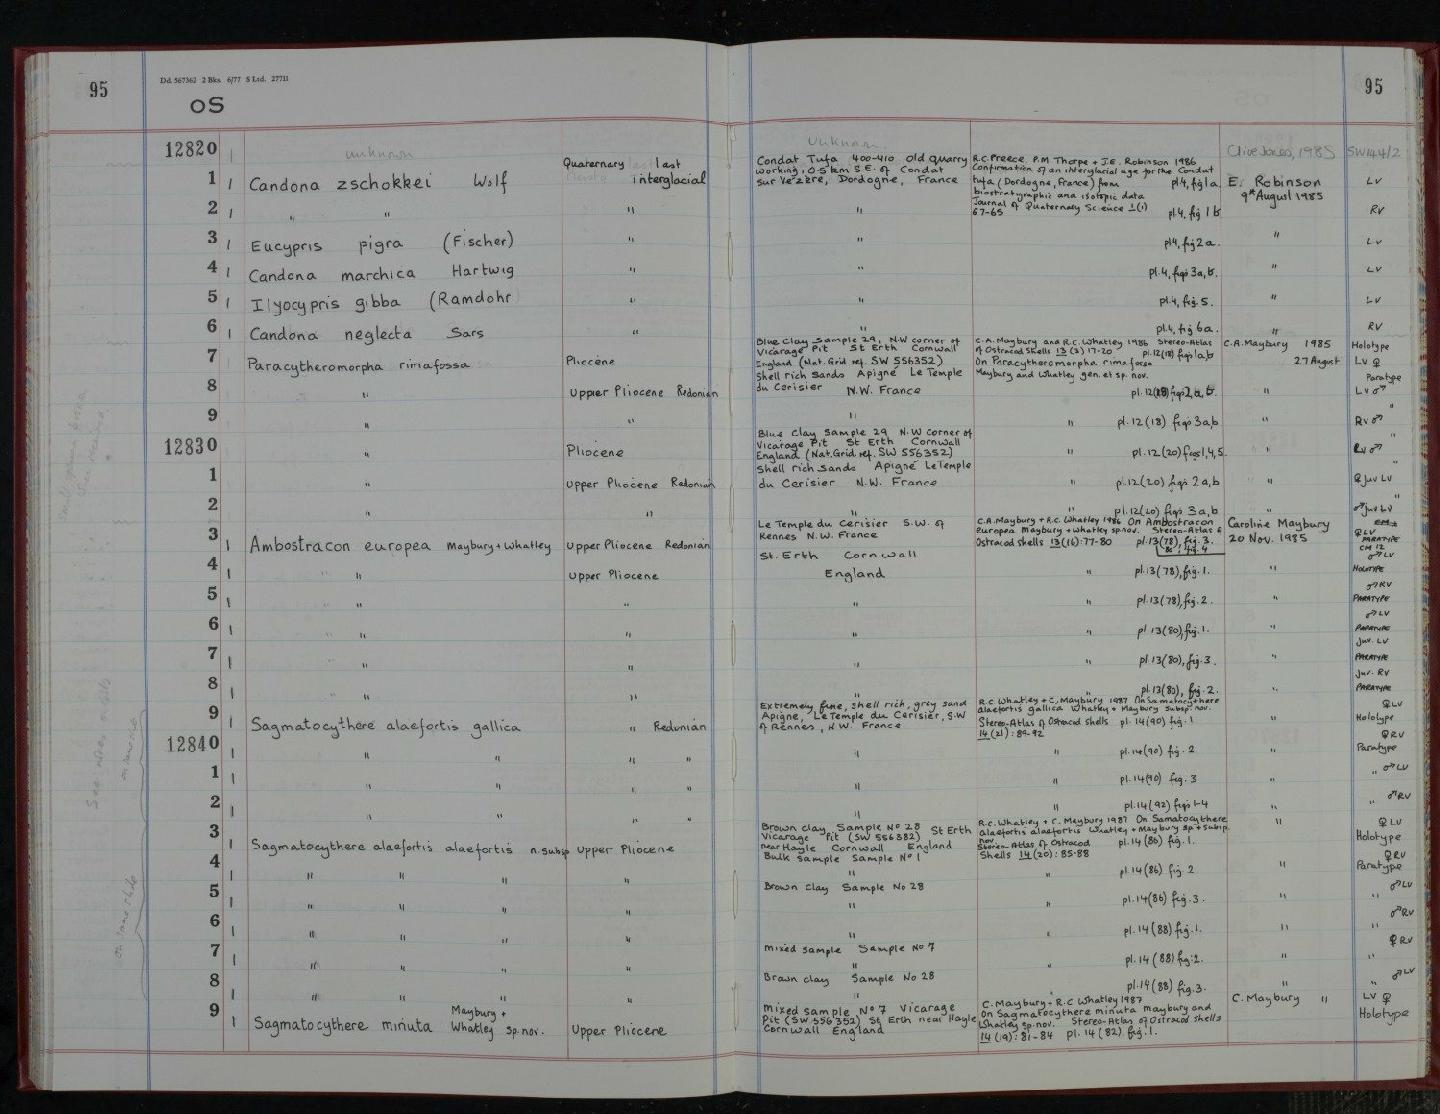 95
Dd. 567362 2 Bks 6/77 S Ltd. 27711
95
OS
12820 1 unknown Unknown Clive Jones, 1985 SW144/2
1 1 Candona zschokkei Wolf Quaternary last interglacial
Condat Tufa 400-410 old quarry
working, 0.5km S.E. of Condat
sur Vézère, Dordogne, France
R.C. Preece, P.M Thorpe + J.E. Robinson 1986
Confirmation of an interglacial age for the Condat
tufa (Dordogne, France) from pl.4, fig 1a.
biostratigraphic and isotopic data
Journal of Quaternary Science 1(1)
67-65
E. Robinson LV
9th August 1985
2 1 " " " " pl.4, fig 1b RV
3 1 Eucypris pigra (Fischer) " " pl.4, fig 2a. " LV
4 1 Candona marchica Hartwig " " pl.4, figs 3a,b. " LV
5 1 Ilyocypris gibba (Ramdohr " " pl.4, fig. 5. " LV
6 1 Candona neglecta Sars " " pl.4, fig 6a. " RV
7 Paracytheromorpha rimafossa Pliocene
Blue Clay Sample 29, N.W corner of
Vicarage Pit St Erth Cornwall
England (Nat. Grid ref. SW 556352)
C.A. Maybury and R.C. Whatley 1986 Stereo-Atlas
of Ostracod Shells 13 (3) 17-20 pl.12(18) figs 1a,b
On Paracytheromorpha rimafossa
Maybury and Whatley gen. et sp. nov.
C.A. Maybury 1985
27 August
Holotype
LV ♀
8 " Upper Pliocene Redonian
Shell rich sands Apigné Le Temple
du Cerisier N.W. France
pl. 12(18) figs 2a, b. "
Paratype
LV ♂
9 " " " " pl. 12 (18) figs 3a,b " "
RV ♂
12830 " Pliocene
Blue Clay Sample 29 N.W corner of
Vicarage Pit St Erth Cornwall
England (Nat. Grid ref. SW 556352)
" pl. 12 (20) figs 1,4,5. " "
RV ♂
1 " Upper Pliocene Redonian
Shell rich sands Apigné Le Temple
du Cerisier N.W. France
" pl. 12(20) figs 2a,b " "
♀ juv LV
2 " " " " pl. 12(20) figs 3a,b " "
♂ juv LV
3 1 Ambostracon europea Maybury + Whatley Upper Pliocene Redonian
Le Temple du Cerisier S.W. of
Rennes N.W. France
C.A. Maybury + R.C. Whatley 1986 On Ambostracon
europea Maybury + Whatley sp. nov. Stereo-Atlas of
Ostracod Shells 13(16):77-80 pl.13(78), fig. 3.
80, fig. 4
Caroline Maybury
20 Nov. 1985
♀ LV
PARATYPE
4 1 " " Upper Pliocene
St. Erth Cornwall
England
" pl.13(78), fig. 1. "
♂ LV
HOLOTYPE
5 1 " " " " " pl.13(78), fig. 2. "
♂ RV
PARATYPE
6 1 " " " " " pl 13(80), fig. 1. "
♂ LV
PARATYPE
7 1 " " " " pl 13(80), fig. 3. "
Juv. LV
PARATYPE
8 1 " " " " pl.13(80), fig. 2. "
Juv. RV
PARATYPE
9 1 Sagmatocythere alaefortis gallica " Redonian
Extremely fine, shell rich, grey sand
Apigne, Le Temple du Cerisier, S.W
of Rennes, N.W. France
R.C. Whatley + C. Maybury 1987 On Samatocythere
alaefortis gallica Whatley + Maybury subsp. nov.
Stereo-Atlas of Ostracod Shells pl. 14(90) fig. 1
14 (21): 89-92
"
♀ LV
Holotype
12840 1 " " " " " " pl. 14(90) fig. 2 "
♀ RV
Paratype
1 1 " " " " " " pl. 14(90) fig. 3 "
" ♂ LV
2 1 " " " " " " pl.14(92) figs 1-4 "
" ♂ RV
3 1 Sagmatocythere alaefortis alaefortis n.subsp Upper Pliocene
Brown clay Sample No 28 St Erth
Vicarage Pit (SW 556382)
near Hayle Cornwall England
R.C. Whatley + C. Maybury 1987 On Samatocythere
alaefortis alaefortis Whatley + Maybury sp + subsp.
nov. pl. 14 (86) fig. 1.
Stereo-Atlas of Ostracod
Shells 14(20): 85-88
"
♀ LV
Holotype
4 1 " " " "
Bulk sample Sample No 1
"
" pl. 14 (86) fig. 2 "
♀ RV
Paratype
5 1 " " " "
Brown clay Sample No 28
"
" pl. 14(86) fig. 3.
♂ LV
"
6 1 " " " " " " pl. 14(88) fig. 1. "
♂ RV
"
7 1 " " " "
mixed sample Sample No 7
"
" pl. 14 (88) fig. 2. "
♀ RV
"
8 1 " " " "
Brown clay Sample No 28
"
pl.14(88) fig. 3. "
♂ LV
"
9 1 Sagmatocythere minuta Maybury + Whatley sp. nov. Upper Pliocene
mixed sample No 7 Vicarage
Pit (SW 556352) St Erth near Hayle
Cornwall England
C. Maybury + R.C Whatley 1987
On Sagmatocythere minuta maybury and
Whatley sp. nov. Stereo-Atlas of Ostracod Shells
14 (19): 81-84 pl. 14 (82) fig. 1.
C. Maybury "
LV ♀
Holotype